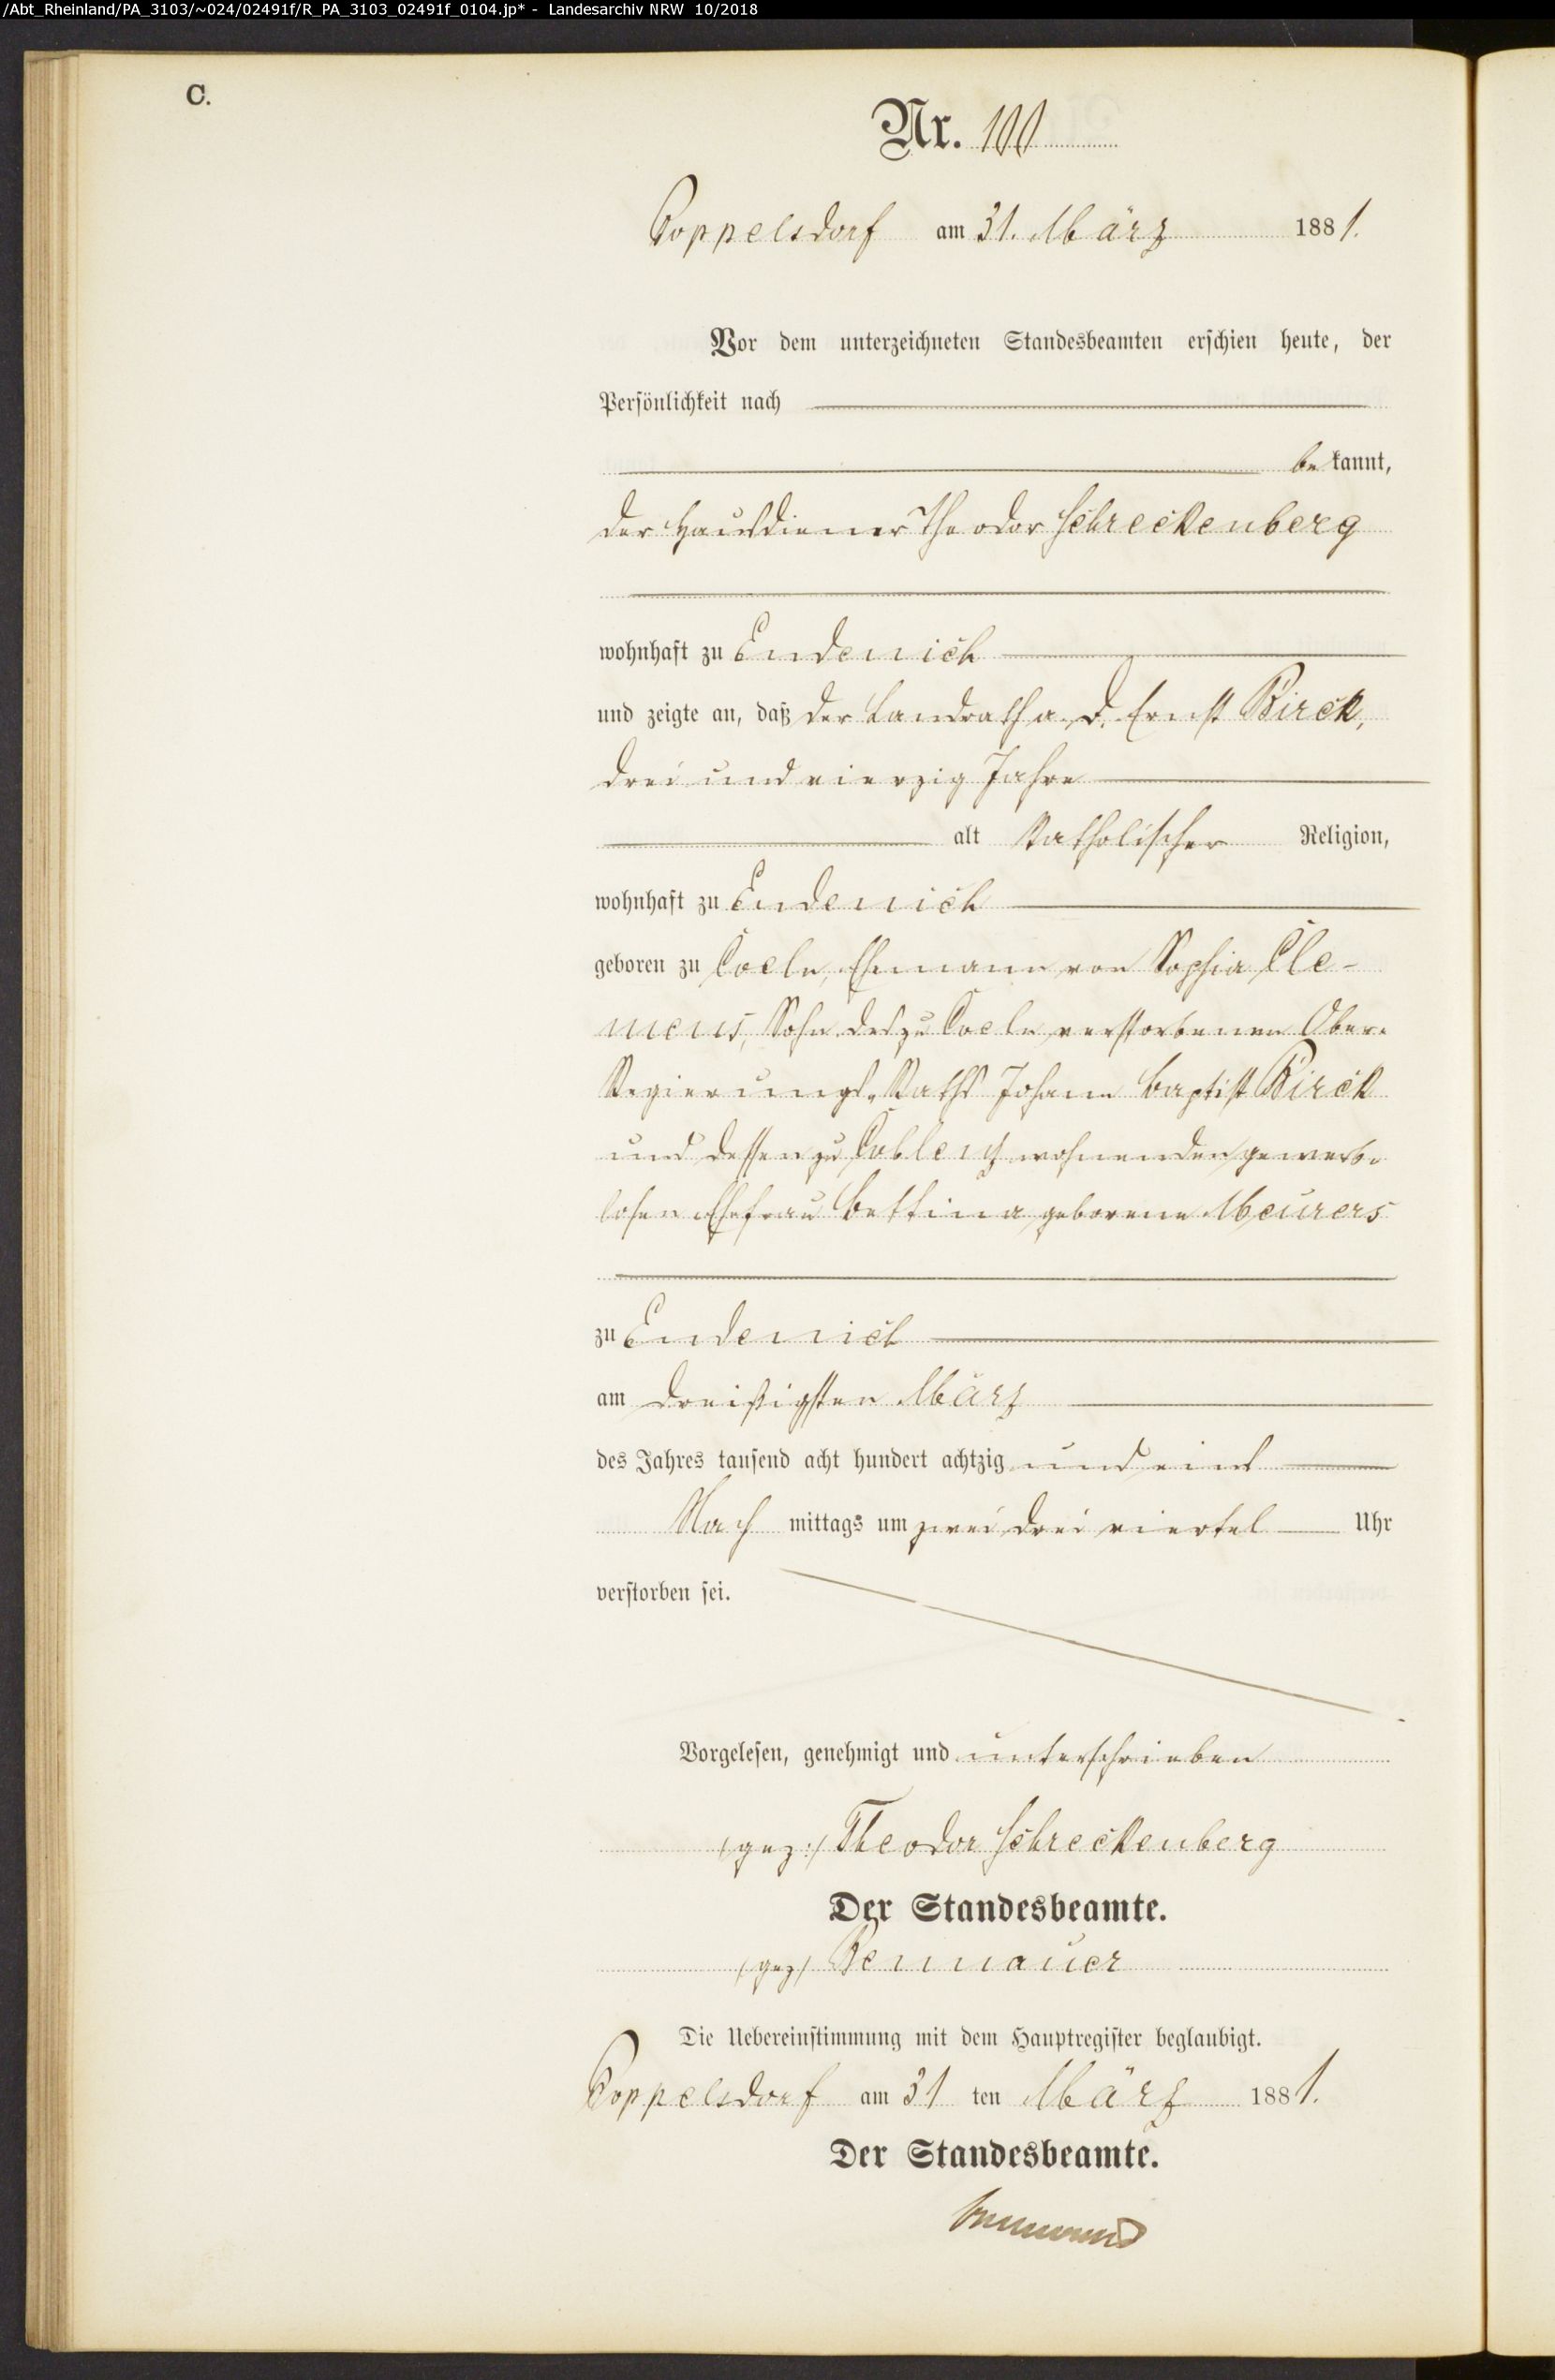 /Abt_Rheinland/PA_3103/~024/02491f/R_PA_3103_02491f_0104.jp* - Landesarchiv NRW 10/2018
C.
Nr. 100
Poppelsdorf am 31. März 1881.
Vor dem unterzeichneten Standesbeamten erschien heute, der
Persönlichkeit nach
bekannt,
der Hausdiener Theodor Schreckenberg
wohnhaft zu Endenich
und zeigte an, daß der Landrath a. D. Ernst Birck,
drei und vierzig Jahre
alt katholischer Religion,
wohnhaft zu Endenich
geboren zu Coeln, Ehemann von Sophia Cle-
mens, Sohn des zu Coeln verstorbenen Ober-
Regierungs-Raths Johann Baptist Birck
und dessen zu Coblenz wohnenden gewerb-
losen Ehefrau Bettina geborene Meurers
zu Endenich
am dreißigsten März
des Jahres tausend acht hundert achtzig und eins
Nach mittags um zwei drei viertel Uhr
verstorben sei.
Vorgelesen, genehmigt und unterschrieben
(gez:) Theodor Schreckenberg
Der Standesbeamte.
(gez) Bennauer
Die Uebereinstimmung mit dem Hauptregister beglaubigt.
Poppelsdorf am 31 ten März 1881.
Der Standesbeamte.